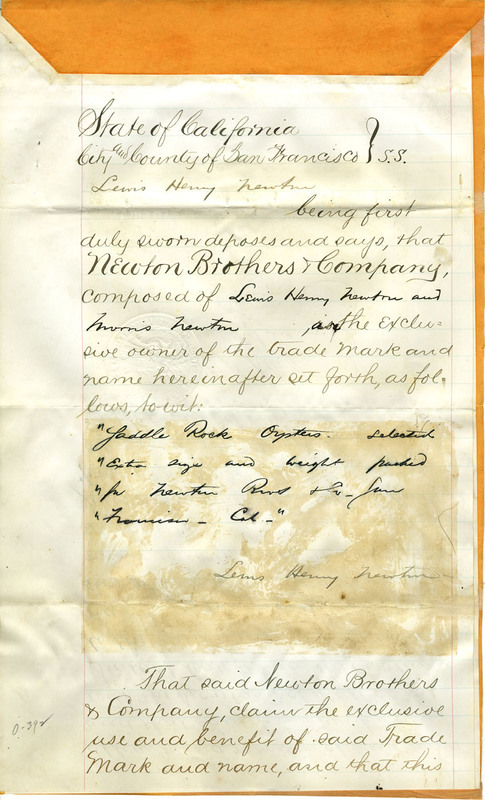 State of California
City and County of San Francisco } S.S.
Lewis Henry Newton
being first
duly sworn deposes and says, that
Newton Brothers & Company,
composed of Lewis Henry Newton and
Morris Newton is the exclu=
sive owner of the trade mark and
name hereinafter set forth, as fol=
lows, to wit:
"Saddle Rock Oysters. selected
"Extra size and weight packed
"for Newton Bros & Co - San
"Francisco - Cal - "
Lewis Henry Newton
That said Newton Brothers
& Company, claim the exclusive
use and benefit of said Trade
Mark and name, and that this
0-392